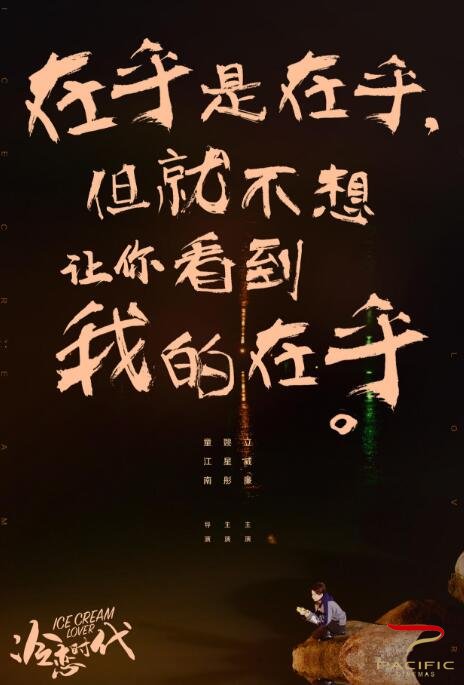 在乎是在乎，
但就不想
让你看到
我的在乎。
立威廉 主演
姚星彤 主演
童江南 导演
ICE CREAM
LOVER
冷恋时代
PACIFIC
CINEMAS
ICE CREAM
LOVER